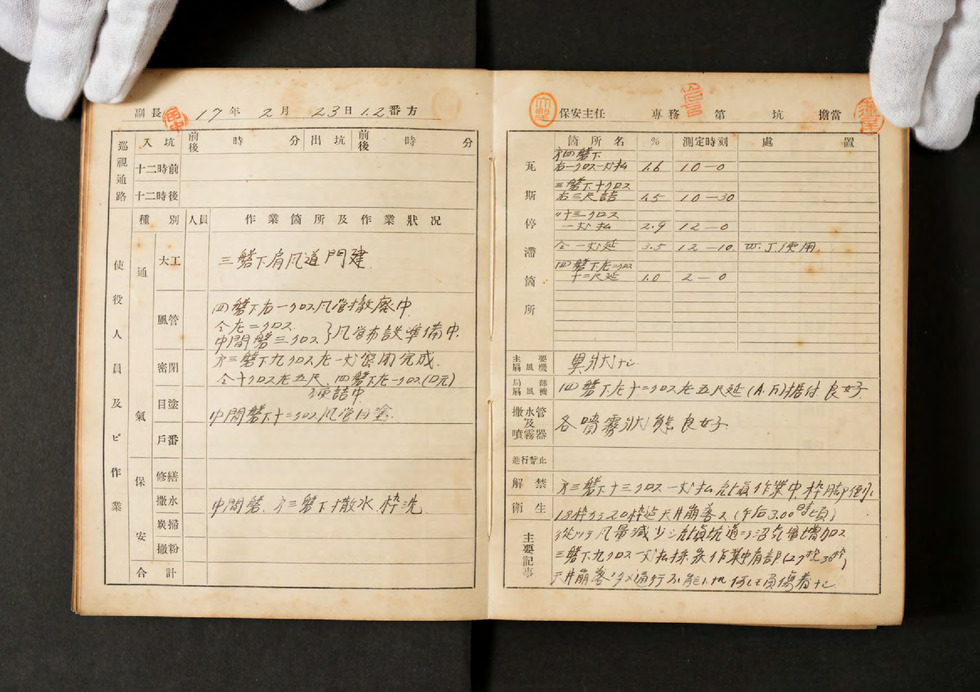 副長 17年 2月 23日 1.2番方
巡視通路
入坑 前後 時 分 出坑 前後 時 分
十二時前
十二時後
使役人員及ビ作業
種別 人員 作業箇所及作業狀況
通氣
大工 三磐下肩风道門建
風管 四磐下右一クロス风管撤廢中
仝左二クロス
中間磐三クロス }风管布設準備中
密閉 㐧三磐下九クロス左一片密閉完成
仝十クロス左五尺、四磐下左一クロス(口元)
目塗 中間磐下十二クロス风管目塗
戶番
保安
修繕
撒水 中間磐、㐧三磐下撒水 枠洗
炭掃
撒粉
合計
保安主任 専務 第 坑 擔當
瓦斯停滯箇所
箇所名 % 測定時刻 處置
㐧四磐下
右一クロス一片払 1.6 10-0
三磐下十クロス
右三尺詰 1.5 10-30
〃十三クロス
一片払 2.9 12-0
仝一片延 3.5 12-10 W.J使用
四磐下左一クロス
十二尺延 1.0 2-0
主要扇風機 異狀ナシ
局部扇風機 四磐下左十二クロス左五尺延(A.F)据付 良好
撒水管及噴霧器 各噴霧狀態良好
進行暫止
解禁 㐧三磐下十三クロス一片払
衛生 18枠カラ20枠迄天井崩落ス(午后3.00時頃)
主要記事 風量減少シ 坑道ニ沼気量增加ス
三磐下九クロス一片払採炭作業中肩部
天井崩落シタメ通行不能